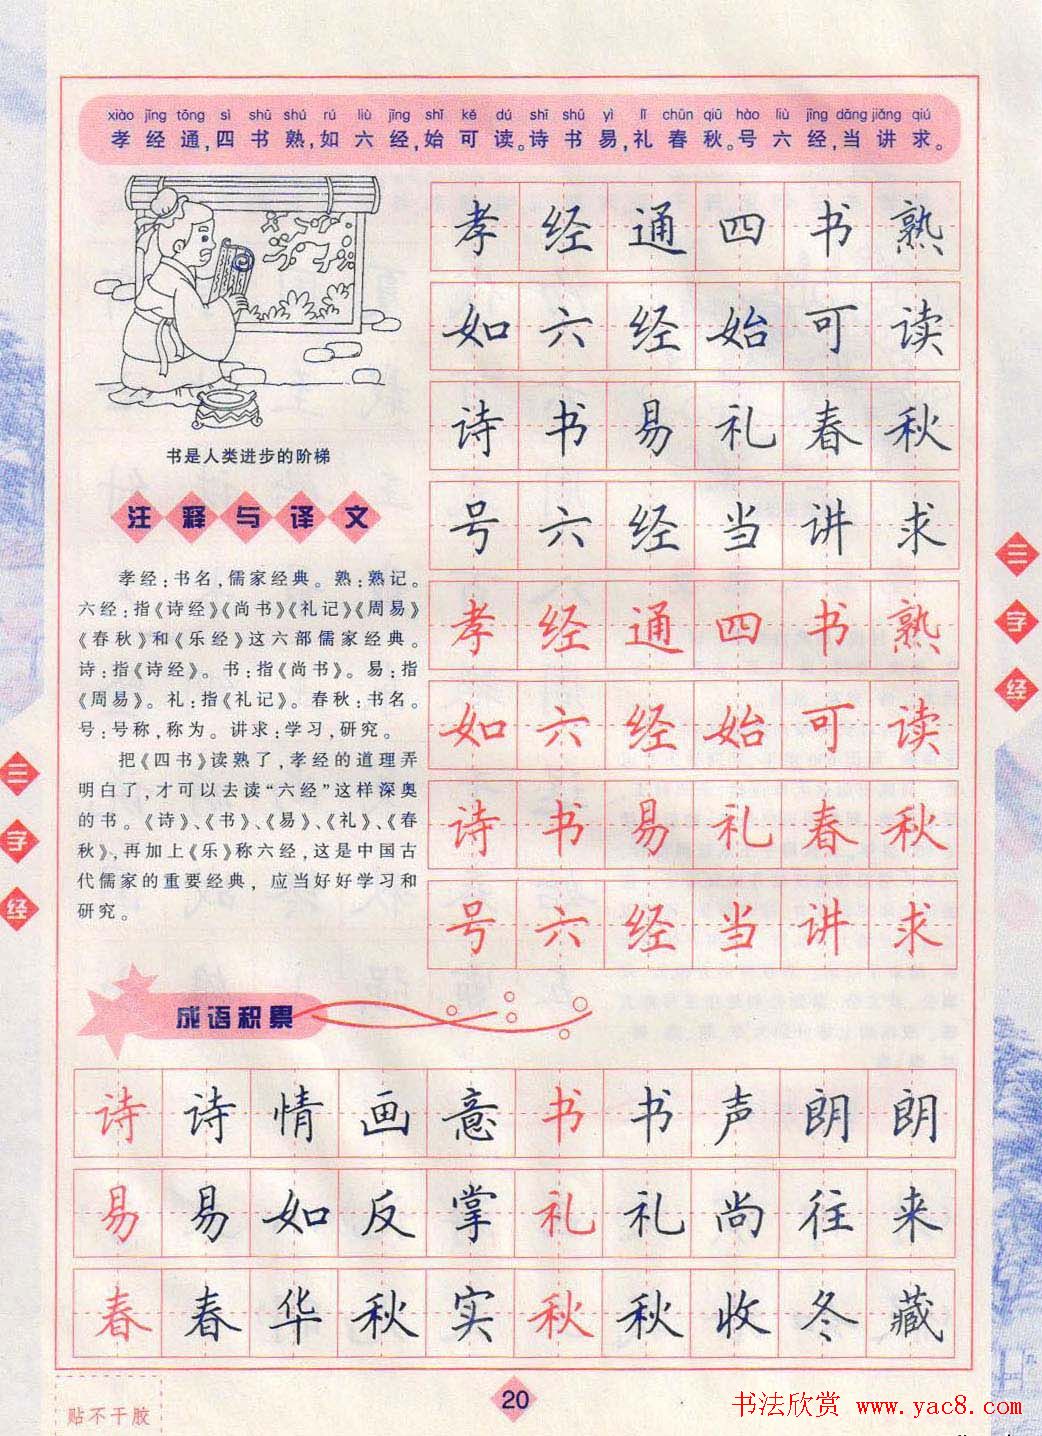 xiào jīng tōng sì shū shú rú liù jīng shǐ kě dú shī shū yì lǐ chūn qiū hào liù jīng dāng jiǎng qiú
孝经通,四书熟,如六经,始可读。诗书易,礼春秋。号六经,当讲求。
孝经通四书熟
如六经始可读
诗书易礼春秋
号六经当讲求
孝经通四书熟
如六经始可读
诗书易礼春秋
号六经当讲求
书是人类进步的阶梯
注释与译文
孝经:书名,儒家经典。熟:熟记。
六经:指《诗经》《尚书》《礼记》《周易》
《春秋》和《乐经》这六部儒家经典。
诗:指《诗经》。书:指《尚书》。易:指
《周易》。礼:指《礼记》。春秋:书名。
号:号称,称为。讲求:学习,研究。
把《四书》读熟了,孝经的道理弄
明白了,才可以去读“六经”这样深奥
的书。《诗》、《书》、《易》、《礼》、《春
秋》,再加上《乐》称六经,这是中国古
代儒家的重要经典,应当好好学习和
研究。
三字经
三字经
成语积累
诗诗情画意书书声朗朗
易易如反掌礼礼尚往来
春春华秋实秋秋收冬藏
贴不干胶
20
书法欣赏 www.yac8.com